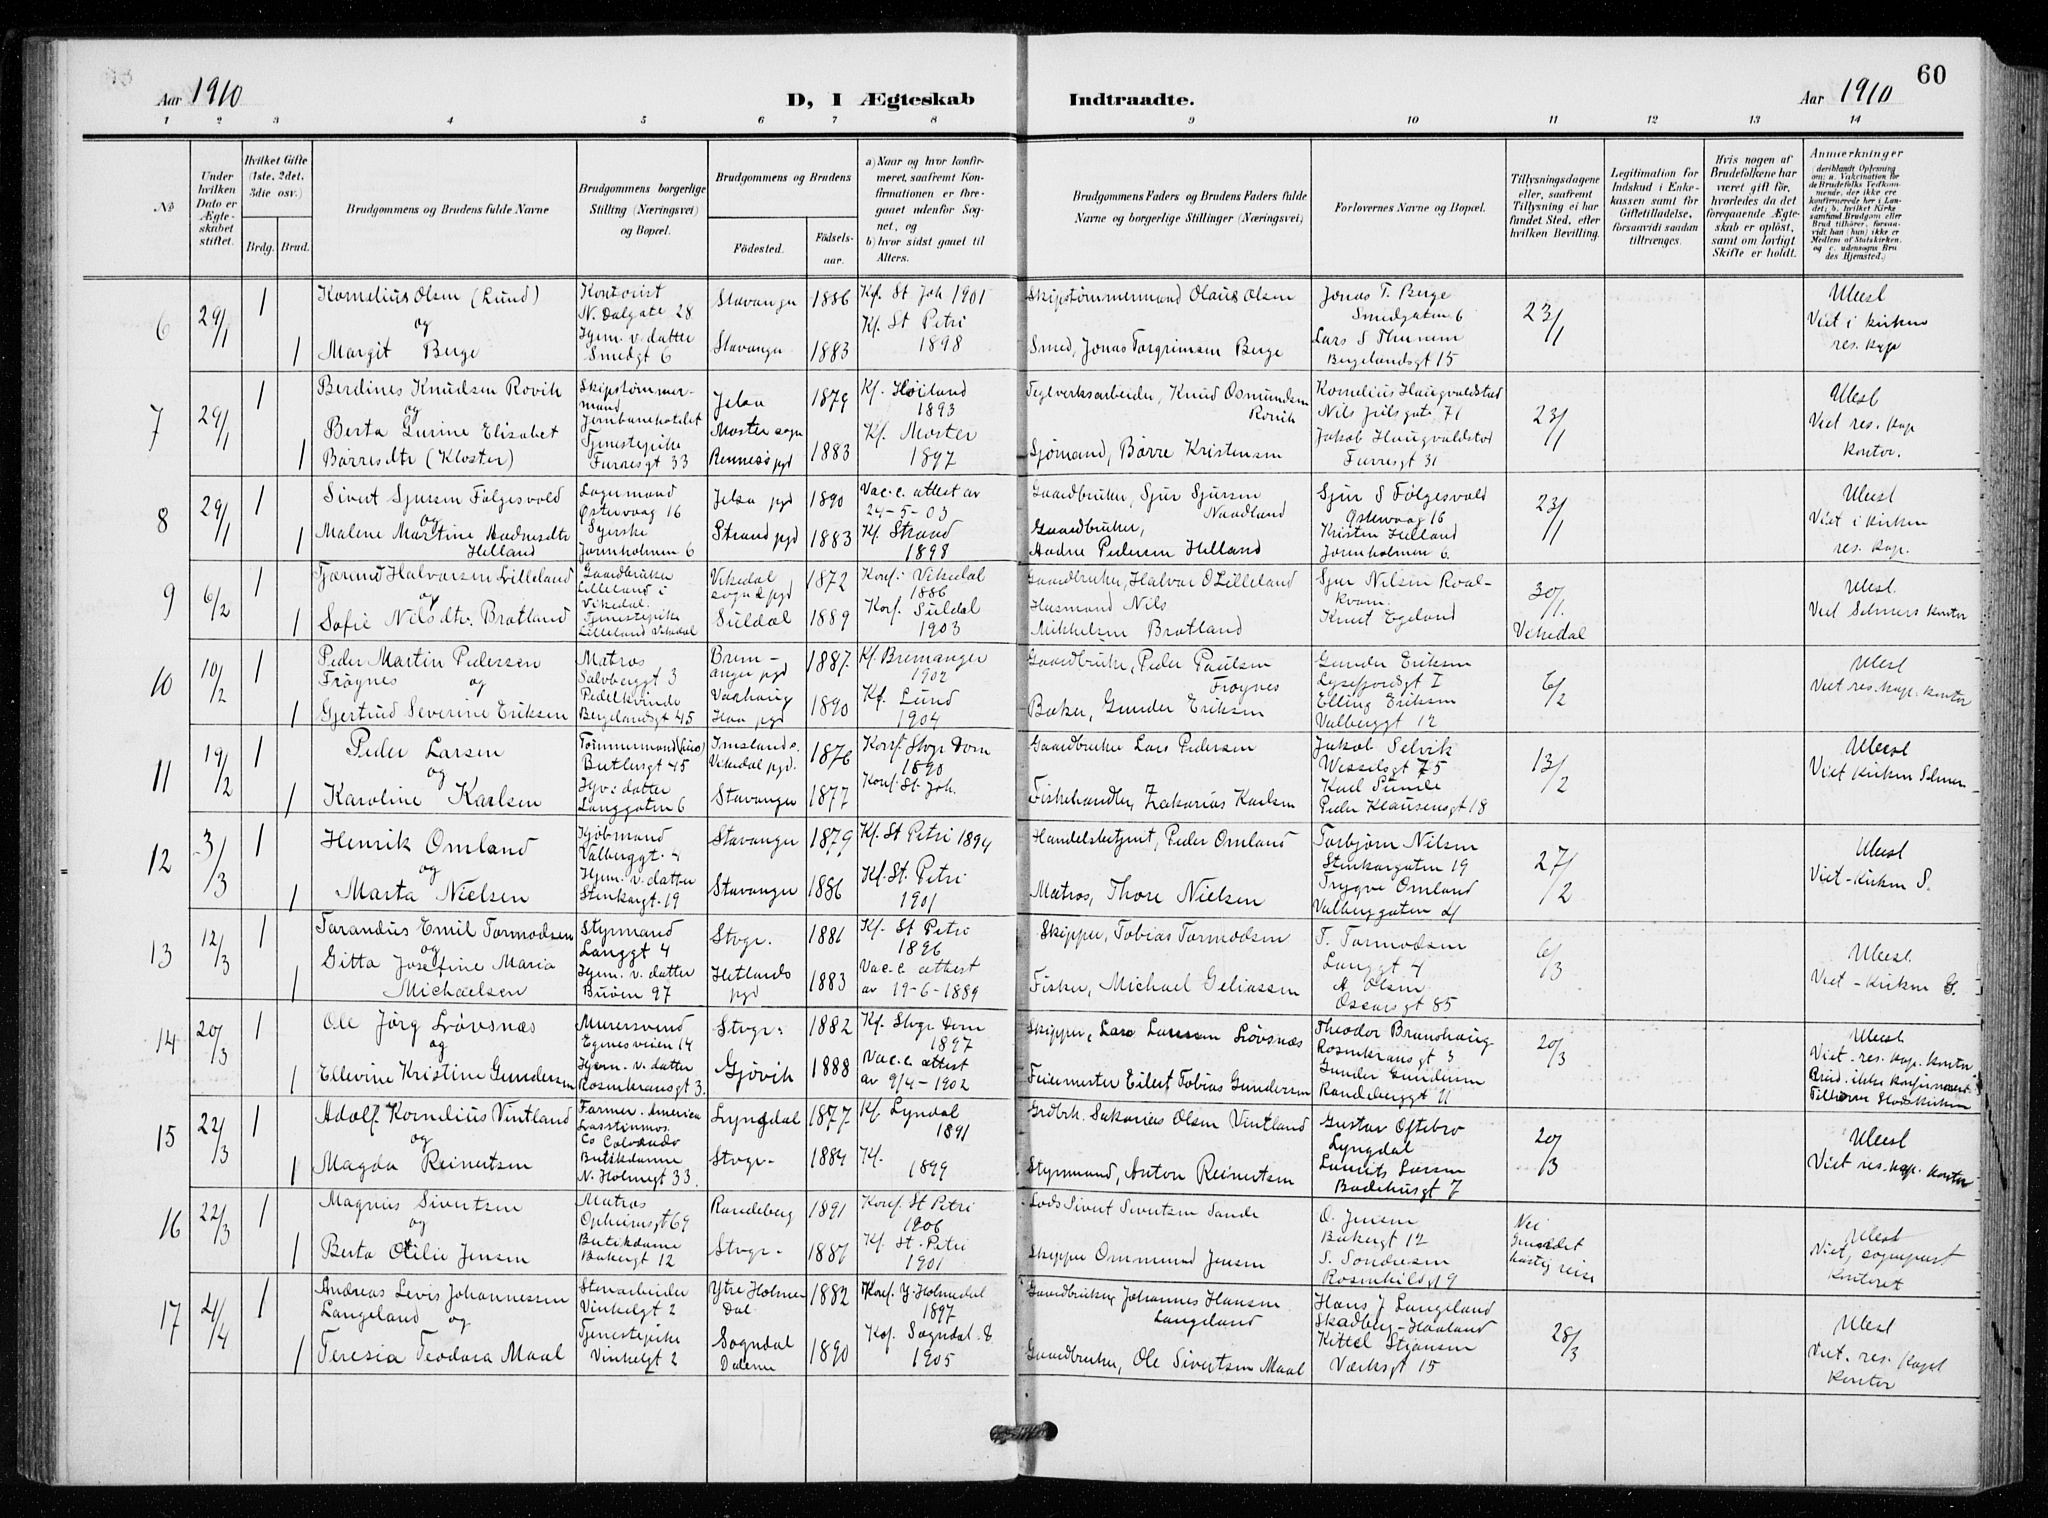 Aar 1910
D, I Ægteskab
Indtraadte.
Aar 1910
60
1 2 3 4 5 6 7 8 9 10 11 12 13 14
No
Under hvilken Dato er Ægteskabet stiftet.
Hvilket Gifte (1ste, 2det, 3die osv.)
Brdg. Brud.
Brudgommens og Brudens fulde Navne
Brudgommens borgerlige Stilling (Næringsvei) og Bopæl.
Brudgommens og Brudens
Födested. Födselsaar.
a) Naar og hvor konfirmeret, saafremt Konfirmationen er foregaaet udenfor Sognet, og
b) hvor sidst gaaet til Alters.
Brudgommens Faders og Brudens Faders fulde Navne og borgerlige Stillinger (Næringsvei)
Forlovernes Navne og Bopæl.
Tillysningsdagene eller, saafremt Tillysning ei har fundet Sted, efter hvilken Bevilling.
Legitimation for Indskud i Enkekassen samt for Giftetilladelse, forsaavidt saadan tiltrænges.
Hvis nogen af Brudefolkene har været gift för, hvorledes da det foregaaende Ægteskab er oplöst, samt om lovligt Skifte er holdt.
Anmerkninger
6 29/1 1 Kornelius Olsen (Lund) Kontorist N. Dalgate 28 Stavanger 1886 Kf. St Joh 1901 Skipstømmermand Olaus Olsen Jonas T. Berge Smedgaten 6 23/1
og
1 Margit Berge Hjem. v. datter Smedgt 6 Stavanger 1883 Kf. St Petri 1898 Smed, Jonas Torgrimsen Berge Lars S Bergelandsgt 15 Viet i kirken res. kap
7 29/1 1 Berdines Knudsen Rovik Skipstømmermand Jernbanehotellet Jelsa 1879 Kf. Høiland 1893 Teglverksarbeider, Knud Osmundsen Rovik Kornelius Haugvaldstad Nils Juelsgate 71 23/1
og
1 Berta Gurine Elisabet Børresdtr (Kloster) Tjenestepike Furresgt 33 Moster sogn Rennesø pgd 1883 Kf. Moster 1897 Sjømand, Børre Kristensen Jakob Haugvaldstad Furresgt 31 Viet res. kap kontor.
8 29/1 1 Sivert Sjursen Følgesvold Lagermand Østervaag 16 Jelsa pgd 1890 Vac. c. attest av 24-5-03 Gaardbruker, Sjur Sjursen Naadland Sjur S Følgesvold Østervaag 16 23/1
og
1 Malene Martine Hadnesdtr Helland Syerske Jornholmen 6 Strand pgd 1883 Kf. Strand 1898 Gaardbruker, Hadne Pedersen Helland Kristen Helland Jornholmen 6. Viet i kirken res. kap.
9 6/2 1 Tjærand Halvorsen Lilleland Gaardbruker Lilleland i Vikedal. Vikedal sogn & pgd 1872 Konf: Vikedal 1886 Gaardbruker, Halvor O Lilleland Sjur Nilsen Roalkvam. 30/1. Vikedal
og
1 Sofie Nilsdtr. Bratland Tjenestepike Lilleland Vikedal Suldal 1889 Konf. Suldal 1903 Husmand Nils Mikkelsen Bratland Knut Egeland Viet Selmers kontor
10 10/2 1 Peder Martin Pedersen Frøynes Matros Salvberggt 3 Bremanger pgd 1887 Kf. Bremanger 1902 Gaardbruker, Peder Paulsen Frøynes Gunder Eriksen Lysefjordsgt 1 6/2
og
1 Gjertrud Severine Eriksen Bergelandsgt 45 Varhaug Haa pgd 1890 Kf. Lund 1904 Baker, Gunder Eriksen Elling Eriksen Valberggt 12 Viet res. kap. kontor
11 19/2 1 Peder Larsen Tømmermand (hus) 45 Imslands. Vikedal pgd. 1876 Konf Stvgr Dom 1890 Gaardbruker Lars Pedersen Jakob Selvik Wesselsgt 75 13/2
og
1 Karoline Karlsen Hjv: datter Langgaten 6 Stavanger 1877 Konf St. Joh. Fiskehandler Zakarias Karlsen Karl Peder Klausensgt 18 Viet Kirken Selmer
12 3/3 1 Henrik Omland Kjøbmand Valberggt. 4 Stavanger 1879 Kf. St Petri 1894 Handelsbetjent, Peder Omland Torbjørn Nilsen Stenkargaten 19 27/2
og
1 Marta Nielsen Hjem. v. datter Stenkargt. 19 Stavanger 1886 Kf. St. Petri 1901 Matros, Thore Nielsen Trygve Omland Valberggaten 4 Viet - Kirken S.
13 12/3 1 Tarandus Emil Tormodsen Styrmand Langgt 4 Stvgr. 1881 Kf. St Petri 1896 Skipper, Tobias Tormodsen T. Tormodsen Langgt 4 6/3
og
1 Gitta Josefine Maria Michaelsen Hjem. v. datter Buøen 97 Hetlands pgd 1883 Vac. c. attest av 19-6-1889 Fisker, Michael Geliassen A Olsen Oscarsgt 85 Viet - Kirken S.
14 20/3 1 Ole Jörg Løvsnæs Murersvend Egenesveien 14 Stvgr. 1882 Kf. Stvgr Dom 1897 Skipper, Lars Larssen Løvsnæs Theodor Brunshaug Rosenkransgt 3 20/3
og
1 Ellevine Kristine Gundersen Hjem. v. datter Rosenkransgt 3. Gjøvik 1888 Vac. c. attest av 9/4-1902 Feiemester Eilert Tobias Gundersen Gunder Gundersen Randeberggt 11 Viet - res. kap. kontor Brud. ikke konfirmert Tilhører Statskirken
15 22/3 1 Adolf Kornelius Vintland Farmer. America Co Colorado Lyngdal 1877 Kf. Lyndal 1891 Grdbrk. Sakarias Olsen Vintland Gustav Oftebro Lyngdal 20/3
og
1 Magda Reinertsen Butikdame N. Holmegt 33 Stvgr. 1884 Kf. 1899 Styrmand, Anton Reinertsen Laurits Larsen Badehusgt 7 Viet res. kap. kontor
16 22/3 1 Magnus Sivertsen Matros Opheimsgt 69 Randeberg 1891 Konf. St Petri 1906 Lods Sivert Sivertsen Sande O. Jensen Bakergt 12 Nei Grundet hastig reise
og
1 Berta Otilie Jensen Butikdame Bakergt 12 Stvgr. 1887 Kf. St. Petri 1901 Skipper Ommund Jensen S. Sondresen Rosenkildgt 9 Viet, sogneprest Kontoret
17 4/4 1 Andreas Levis Johannessen Langeland Stenarbeider Vinkelgt 2 Ytre Holmedal 1882 Konf. Y. Holmedal 1897 Gaardbruker Johannes Hansen Langeland Hans J Langeland Skadberg - Haaland 28/3
og
1 Teresia Teodora Maal Tjenestepike Vinkelgt 2 Sogndal Dalerne 1890 Kof. Sogndal. D 1905 Gaardbruker, Ole Sivertsen Maal Kittel Stiansen Værksgt 15 Viet. res. kapl kontor